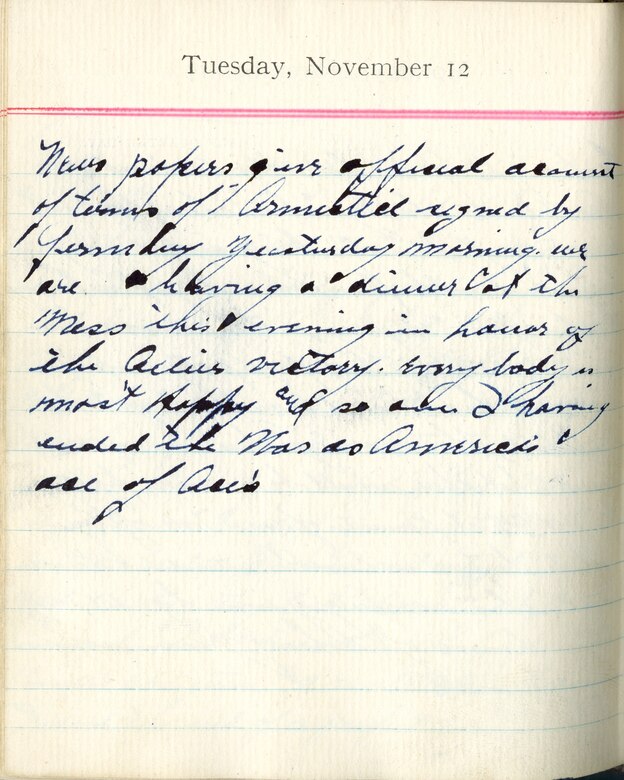 Tuesday, November 12
News papers give official account
of terms of Armistice signed by
Germany Yesterday morning. we
are having a dinner at the
Mess this evening in honor of
the Allies victory. Every body is
most Happy and so am I having
ended the War as America's
ace of Aces